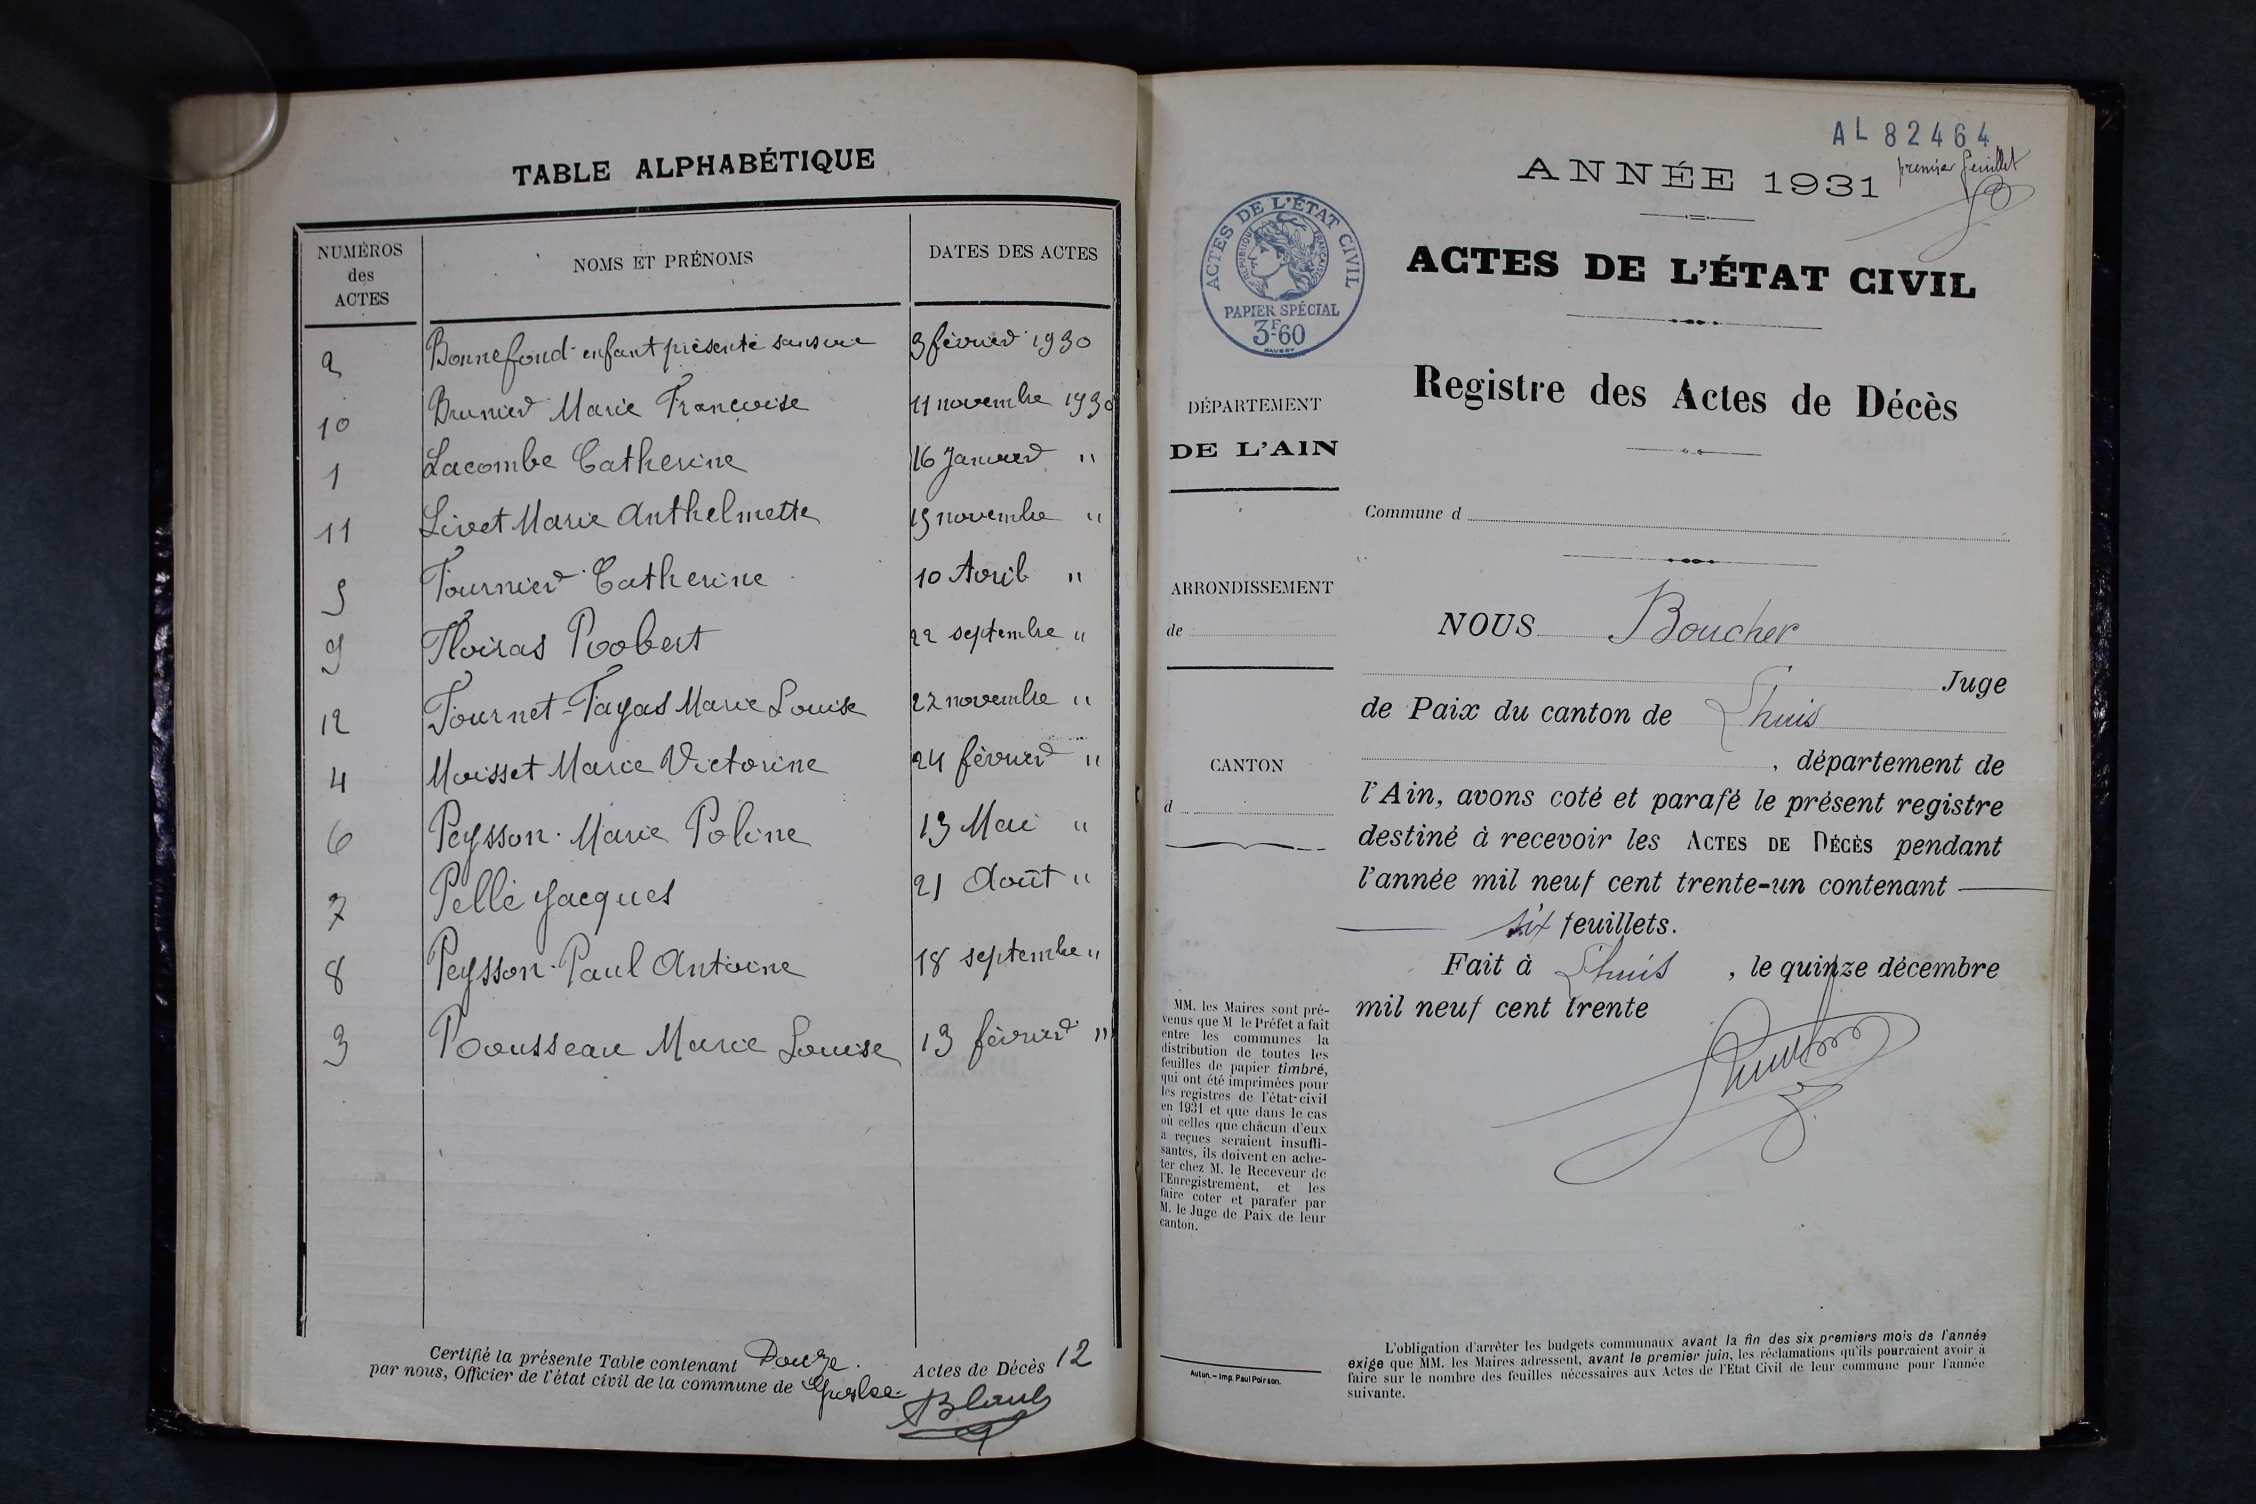 TABLE ALPHABÉTIQUE
NUMÉROS
des
ACTES
NOMS ET PRÉNOMS
DATES DES ACTES
2 Bonnefond enfant présenté sans vie 3 février 1930
10 Brunier Marie Françoise 11 novembre 1930
1 Lacombe Catherine 16 Janvier "
11 Livet Marie Anthelmette 15 novembre "
5 Fournier Catherine 10 Avril "
9 Floiras Robert 22 septembre "
12 Fournet-Fayas Marie Louise 22 novembre "
4 Moisset Marie Victorine 24 février "
6 Peysson Marie Poline 13 Mai "
7 Pellé Jacques 21 Août "
8 Peysson Paul Antoine 18 septembre "
3 Rousseau Marie Louise 13 février "
Certifié la présente Table contenant Douze. Actes de Décès 12
par nous, Officier de l'état civil de la commune de
ABlanc
AL 82464
premier feuillet
ANNÉE 1931
ACTES DE L'ÉTAT CIVIL
RÉPUBLIQUE FRANÇAISE
PAPIER SPÉCIAL
3F60
ACTES DE L'ÉTAT CIVIL
Registre des Actes de Décès
DÉPARTEMENT
DE L'AIN
Commune d
ARRONDISSEMENT
de
CANTON
d
NOUS Boucher
Juge
de Paix du canton de Lhuis
, département de
l'Ain, avons coté et parafé le présent registre
destiné à recevoir les ACTES DE DÉCÈS pendant
l'année mil neuf cent trente-un contenant
six feuillets.
Fait à Lhuis , le quinze décembre
mil neuf cent trente
MM. les Maires sont pré-
venus que M le Préfet a fait
entre les communes la
distribution de toutes les
feuilles de papier timbré,
qui ont été imprimées pour
les registres de l'état-civil
en 1931 et que dans le cas
où celles que châcun d'eux
a reçues seraient insuffi-
santes, ils doivent en ache-
ter chez M. le Receveur de
l'Enregistrement, et les
faire coter et parafer par
M. le Juge de Paix de leur
canton.
Autun.— Imp. Paul Poirson.
L'obligation d'arrêter les budgets communaux avant la fin des six premiers mois de l'année
exige que MM. les Maires adressent, avant le premier juin, les réclamations qu'ils pourraient avoir à
faire sur le nombre des feuilles nécessaires aux Actes de l'Etat Civil de leur commune pour l'année
suivante.